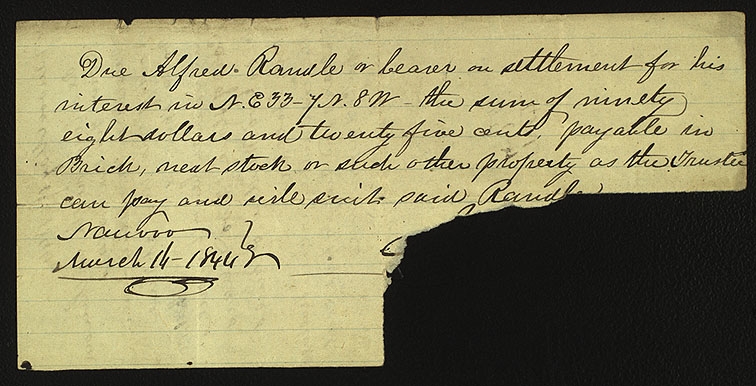 Due Alfred Randle or bearer on settlement for his
interest in N.E 33-7N. 8W - the sum of ninety
eight dollars and twenty five cents payable in
Brick, neat stock or such other property as the Trustee
can pay and will suit said Randle
Nauvoo
March 14-1844